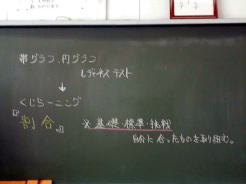 帯グラフ、円グラフ
レディネステスト
↓
くじらーニング
『割合』
※基礎・標準・挑戦
自分に合ったものを取り組む。